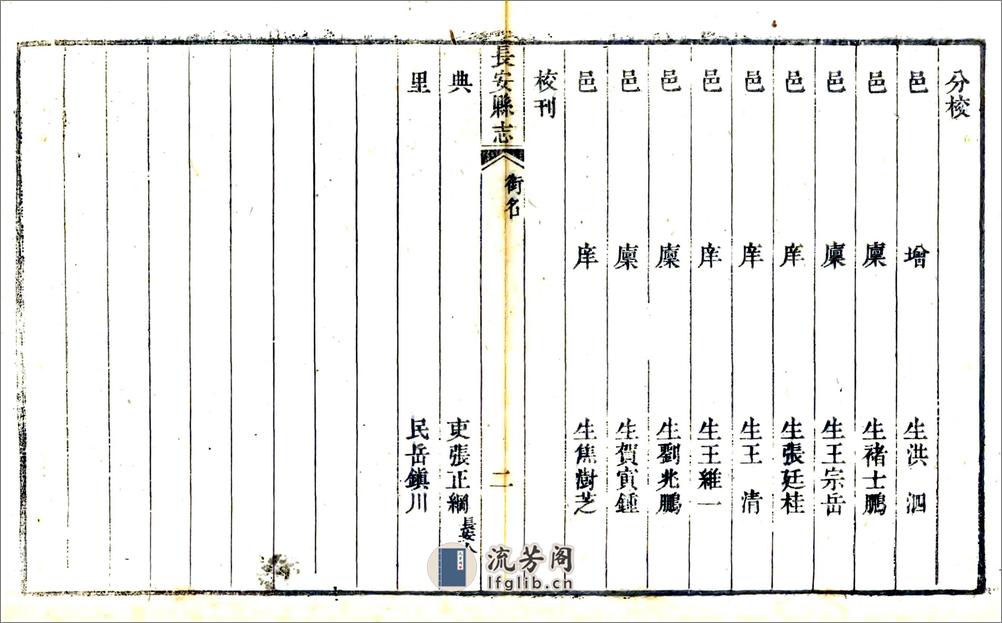 分校
邑增生洪泗
邑廩生褚士鵬
邑廩生王宗岳
邑庠生張廷桂
邑庠生王清
邑庠生王維一
邑廩生劉兆鵬
邑廩生賀寅鍾
邑庠生焦澍芝
校刊
長安縣志
銜名
二
典吏張正綱長安人
里民岳鎮川
流芳阁
lfglib.cn